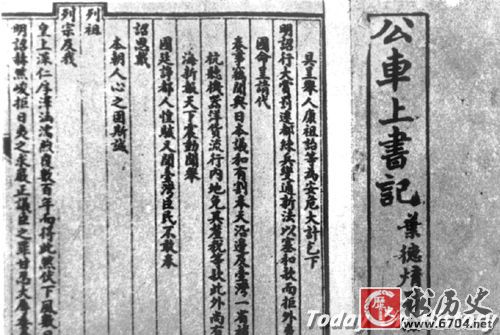 公車上書記
葉德
具呈舉人康祖詒等為安危大計乞下
明詔行大賞罰遷都練兵變通新法以塞和款而拒外
國命呈請代
奏事竊聞與日本議和有割奉天沿邊及臺灣一省
杭聽機器洋貨流行內地免其釐稅等款此外尚有
海新報天下震動聞舉
國廷諍都人惶駭又聞臺灣臣民不敢奉
詔思戴
本朝人心之固斯誠
列祖
列宗及我
皇上深仁厚澤涵濡煦育數百年而得此然伏下風數
明詔赫然峻拒日夷之求嚴正議臣之罪甘忍大辱
Today
歷史
历史
www.6704.net